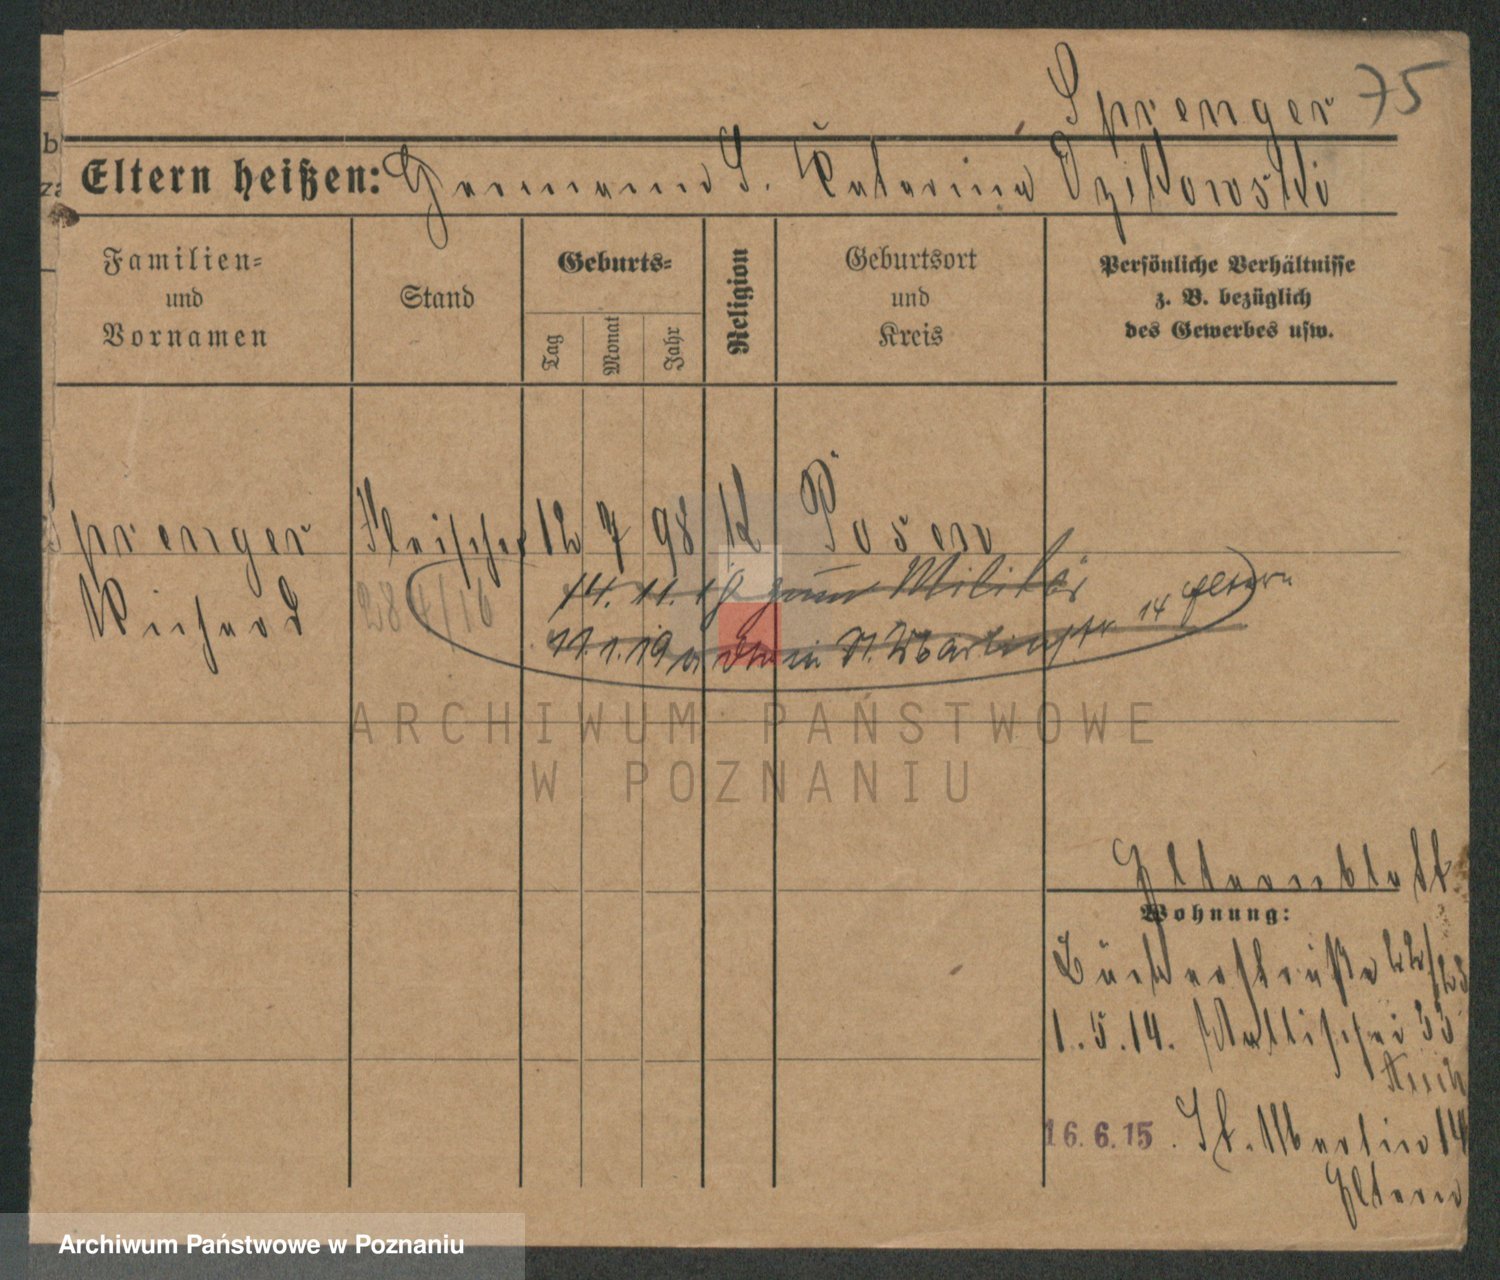 Sprenger 75
Eltern heißen: Hermann S. Katarina Dzikowski
Familien-
und
Vornamen
Stand
Geburts-
Tag
Monat
Jahr
Religion
Geburtsort
und
Kreis
Persönliche Verhältnisse
z. B. bezüglich
des Gewerbes usw.
Sprenger Fleischer 12 7 98 K Posen
Richard
14. 11. 18 zum Militär
11.1.19 St. Martinstr 14 Eltern
ARCHIWUM PAŃSTWOWE
W POZNANIU
Elternblatt
Wohnung:
Bäckerstraße 22/23
1.5.14. Wallischei 33
16.6.15. St. Martin 14
Eltern
Archiwum Państwowe w Poznaniu